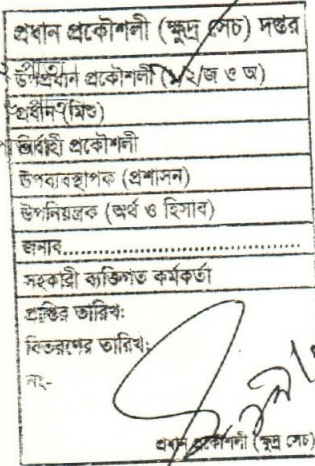 প্রধান প্রকৌশলী (ক্ষুদ্র সেচ) দপ্তর
উপপ্রধান প্রকৌশলী (১/২/জ ও অ)
প্রধান (মিও)
নির্বাহী প্রকৌশলী
উপব্যবস্থাপক (প্রশাসন)
উপনিয়ন্ত্রক (অর্থ ও হিসাব)
জনাব..............................
সহকারী ব্যক্তিগত কর্মকর্তা
প্রাপ্তির তারিখ:
বিতরণের তারিখ:
নং-
প্রধান প্রকৌশলী (ক্ষুদ্র সেচ)